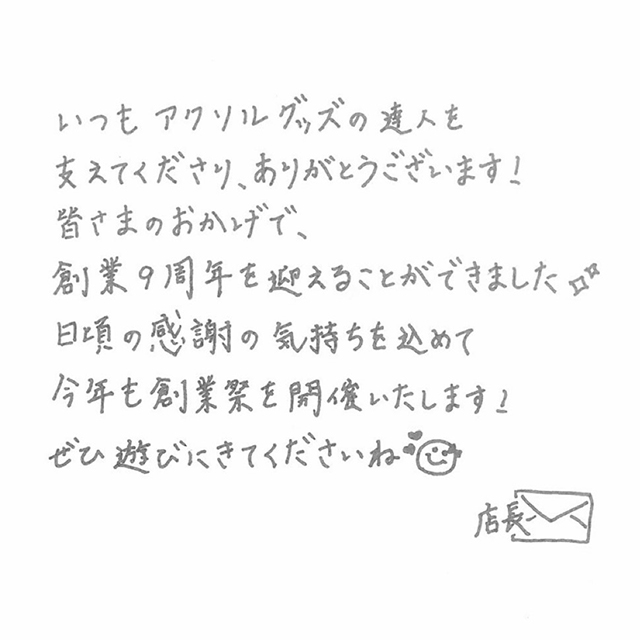 いつもアクリルグッズの達人を
支えてくださり、ありがとうございます!
皆さまのおかげで、
創業9周年を迎えることができました
日頃の感謝の気持ちを込めて
今年も創業祭を開催いたします!
ぜひ遊びにきてくださいね
店長